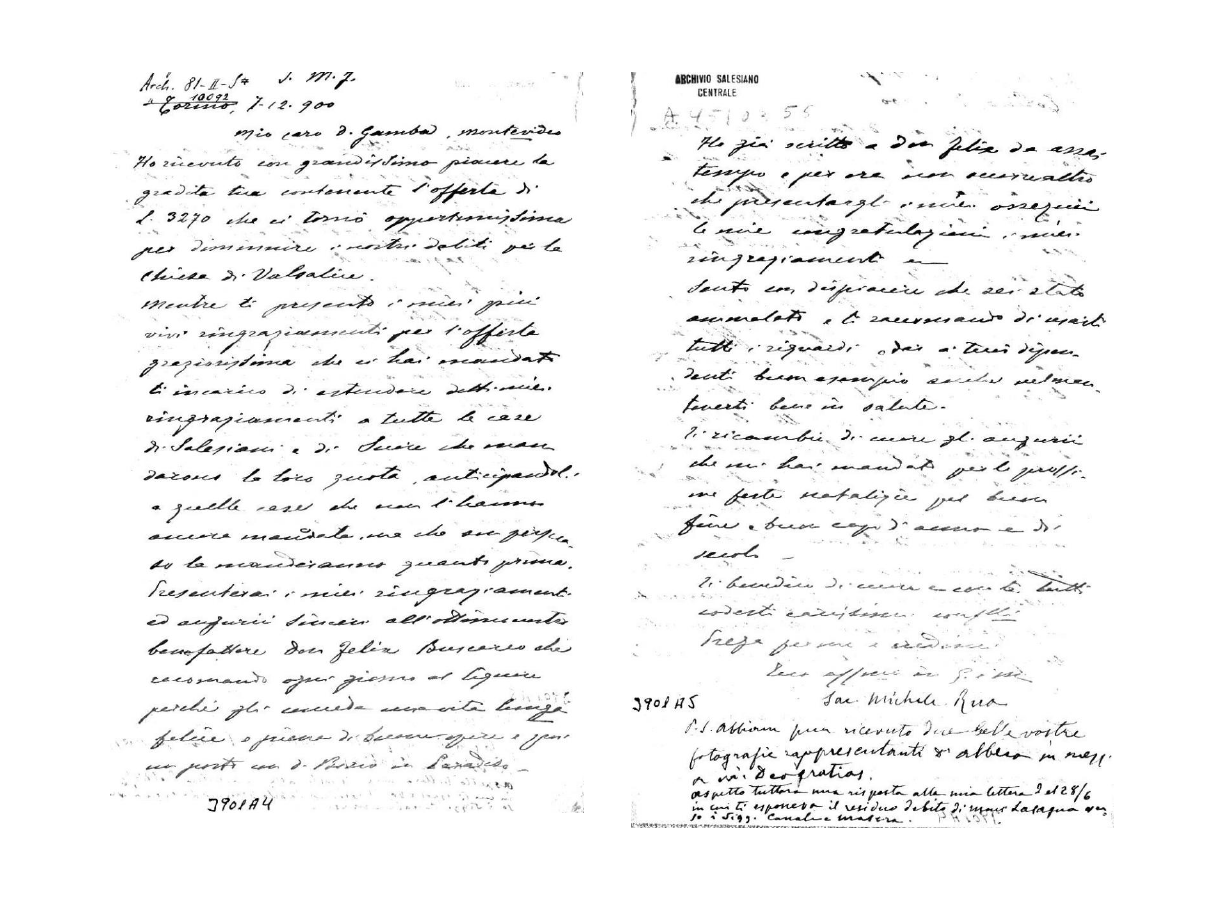 Arch. 81-II-S4 J. M. J.
" 9 10092
Torino, 7-12.900
Mio caro D. Gamba, Montevideo
Ho ricevuto con grandissimo piacere la
gradita tua contenente l'offerta di
L. 3270 che ci tornò opportunissima
per diminuire i nostri debiti per la
Chiesa di Valsalice.
Mentre ti presento i miei più
vivi ringraziamenti per l'offerta
graziosissima che ci hai mandato
ti incarico di estendere detti miei
ringraziamenti a tutte le case
di Salesiani e di Suore che man
darono la loro quota, anticipandoli
a quelle case che non l'hanno
ancora mandata, ma che son persua
so la manderanno quanto prima.
Presenterai i miei ringraziamenti
ed augurii sinceri all'ottimo nostro
benefattore Don Felix Buscareo che
racomando ogni giorno al Signore
perché gli conceda una vita lunga
felice e piena di buone opere e poi
un posto con D. Bosco in Paradiso
J901A4
ARCHIVIO SALESIANO
CENTRALE
A 4510355
Ho già scritto a Don Felix da assai
tempo e per ora non occorre altro
che presentargli i miei ossequii
le mie congratulazioni, i miei
ringraziamenti
Sento con dispiacere che sei stato
ammalato e ti raccomando di usarti
tutti i riguardi e dar a' tuoi dipen
denti buon esempio anche nel man
tenerti bene in salute.
Ti ricambio di cuore gli augurii
che mi hai mandato per le prossi
me feste natalizie pel buon
fine e buon capo d'anno e di
secolo
Ti benedico di cuore e con te tutti
codesti carissimi confelli
Prega per me e credimi
Tuo affmo in G. e M.
Sac. Michele Rua
J901A5
P.S. Abbiam pure ricevuto due belle vostre
fotografie rappresentanti
Deo gratias.
aspetto tuttora una risposta alla mia lettera del 28/6
in cui ti esponeva il residuo debito di mons Lasagna ver
so i Sigg. Canale e Masera.
J901A5